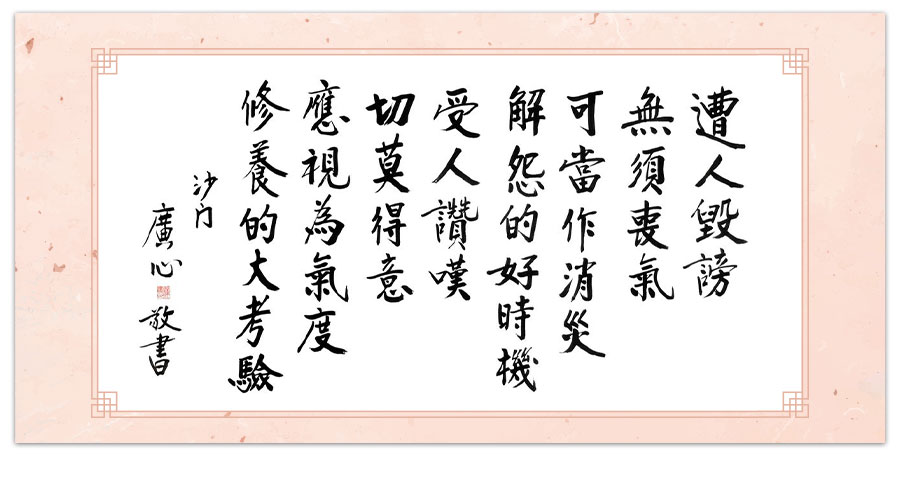 遭人毀謗
無須喪氣
可當作消災
解怨的好時機
受人讚嘆
切莫得意
應視為氣度
修養的大考驗
沙门
廣心
敬書